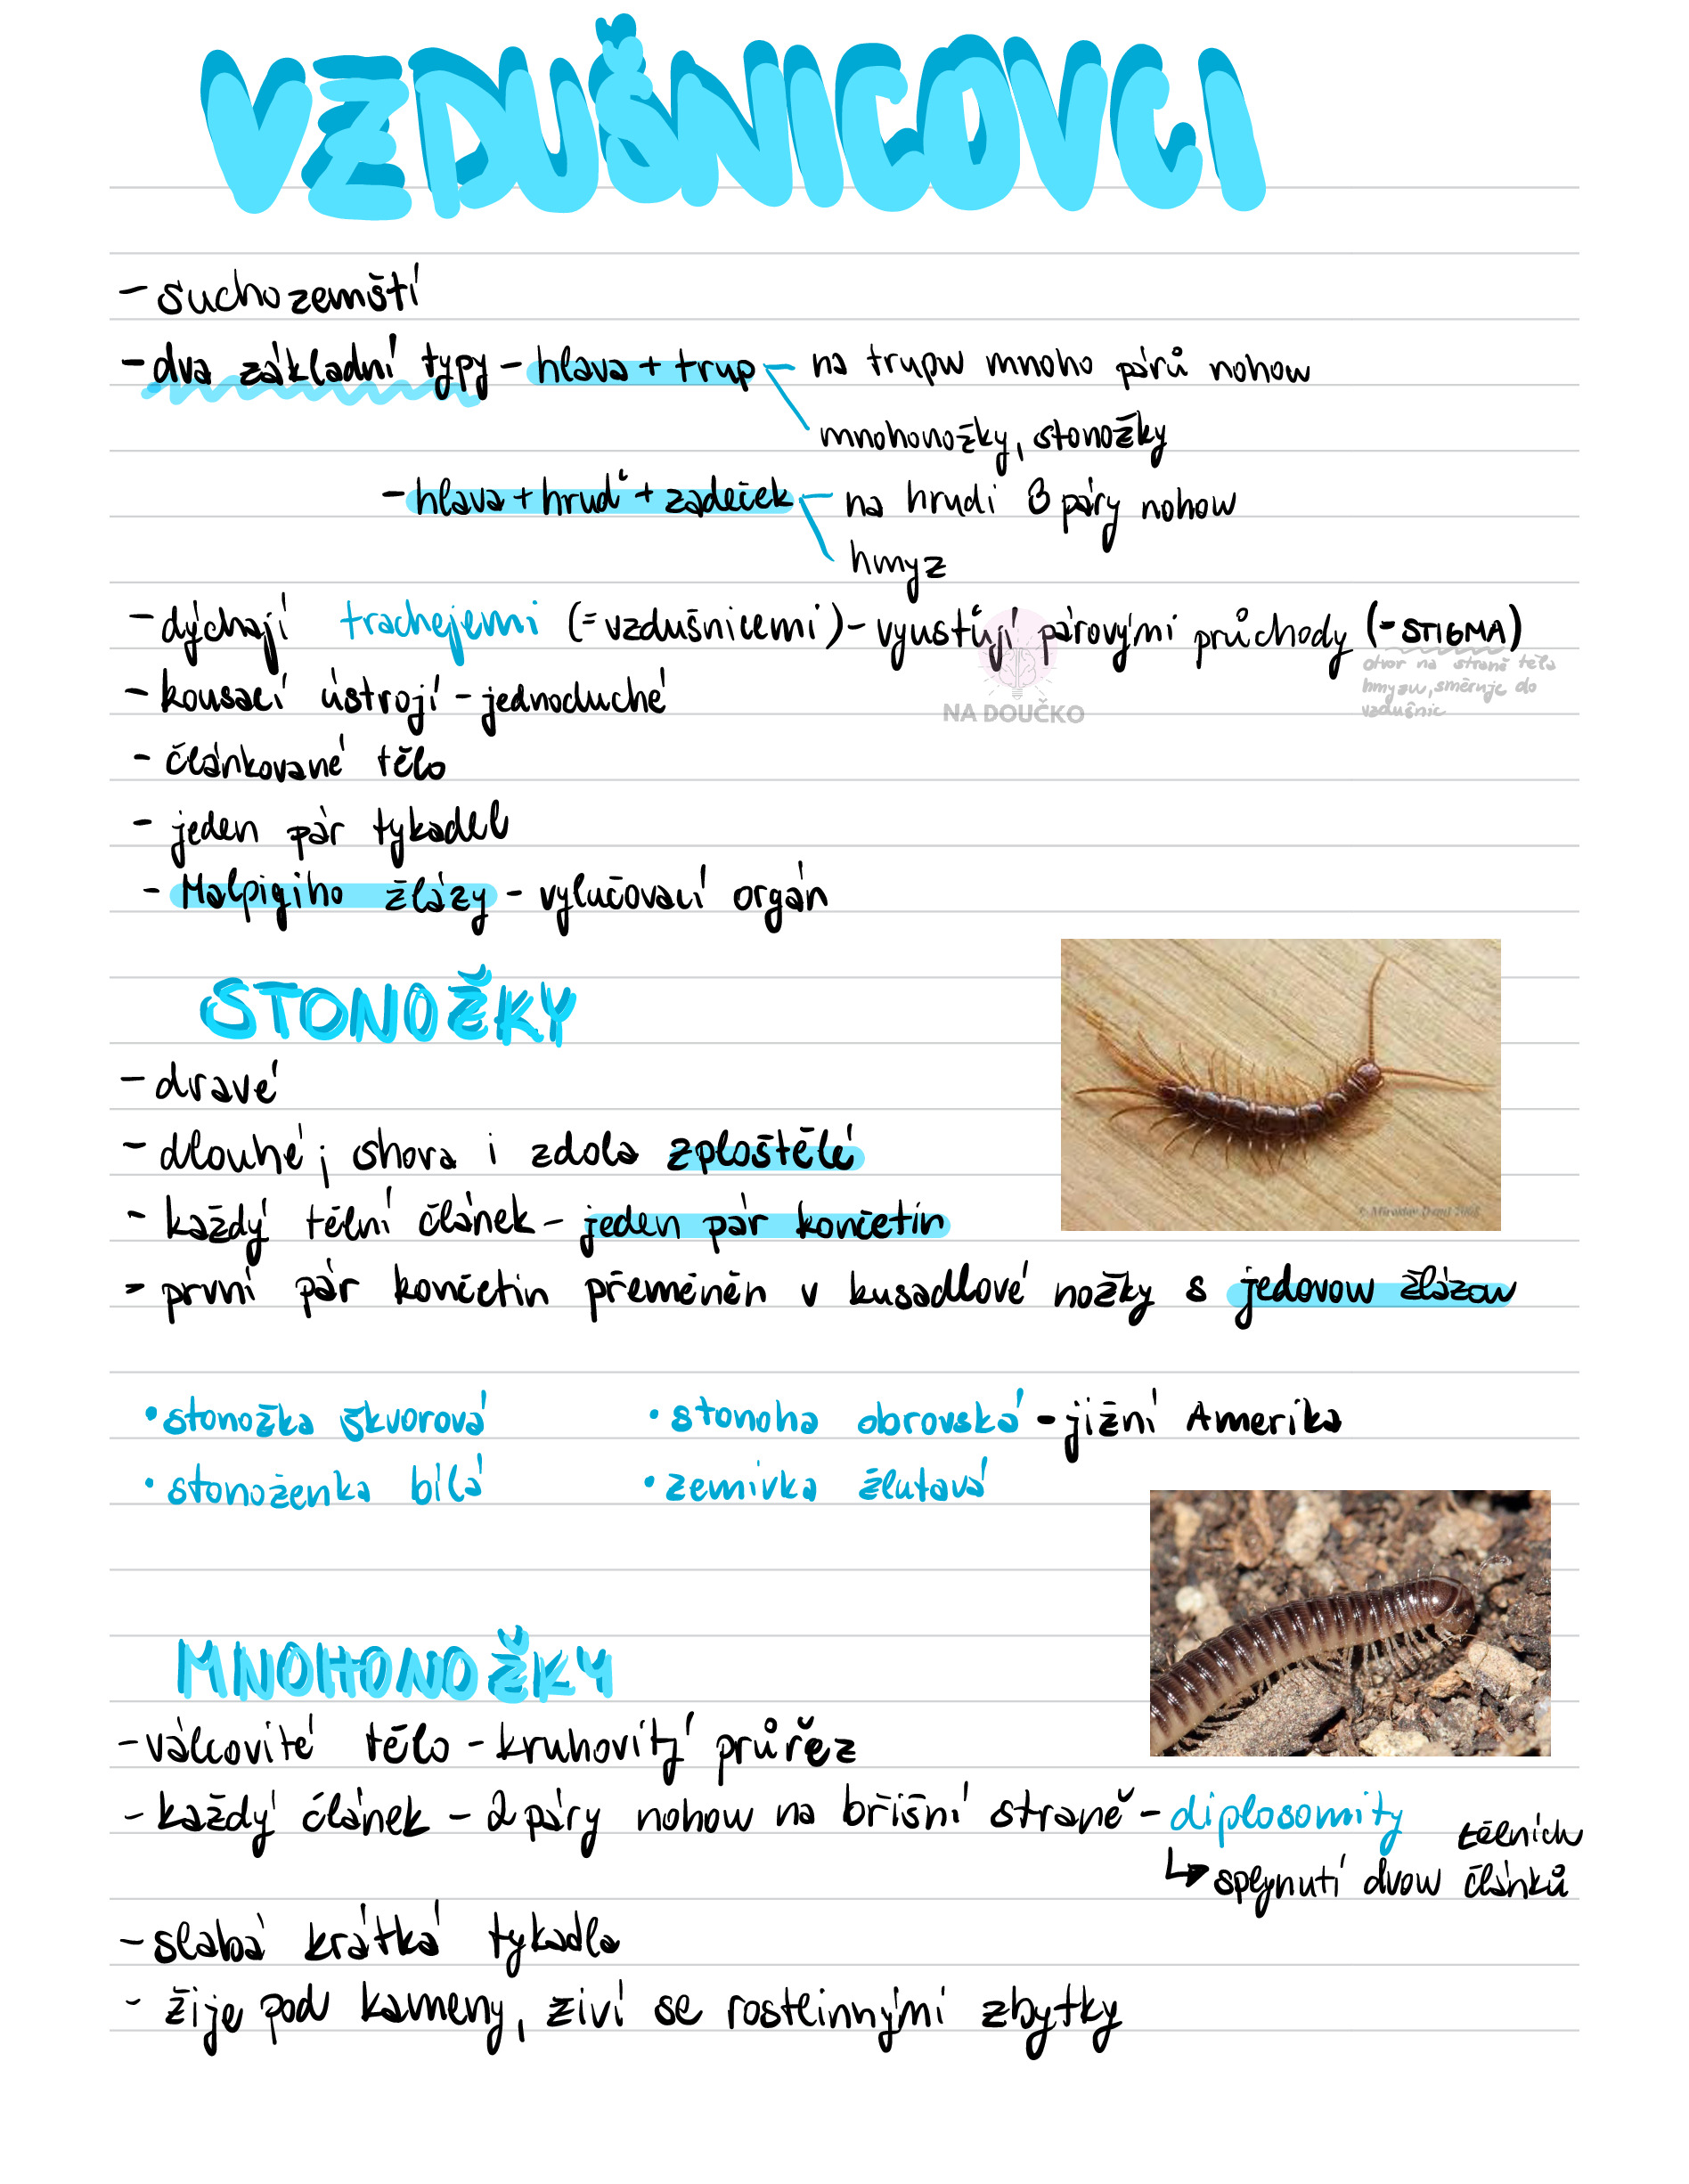 VZDUŠNICOVCI
- suchozemští
- dva základní typy - hlava + trup - na trupu mnoho párů nohou
mnohonožky, stonožky
- hlava + hruď + zadeček - na hrudi 3 páry nohou
hmyz
- dýchají trachejemi (= vzdušnicemi) - vyusťují párovými průchody (- STIGMA)
otvor na straně těla
hmyzu, směruje do
vzdušnic
NA DOUČKO
- kousací ústrojí - jednoduché
- článkované tělo
- jeden pár tykadel
- Malpigiho žlázy - vylučovací orgán
STONOŽKY
- dravé
- dlouhé; shora i zdola zploštělé
- každý tělní článek - jeden pár končetin
- první pár končetin přeměněn v kusadlové nožky s jedovou žlázou
• stonožka škvorová • stonoha obrovská - jižní Amerika
• stonoženka bílá • zemivka žlutavá
MNOHONOŽKY
- válcovité tělo - kruhovitý průřez
- každý článek - 2 páry nohou na břišní straně - diplosomity
↳ splynutí dvou tělních článků
- slabá krátká tykadla
- žije pod kameny, živí se rostlinnými zbytky